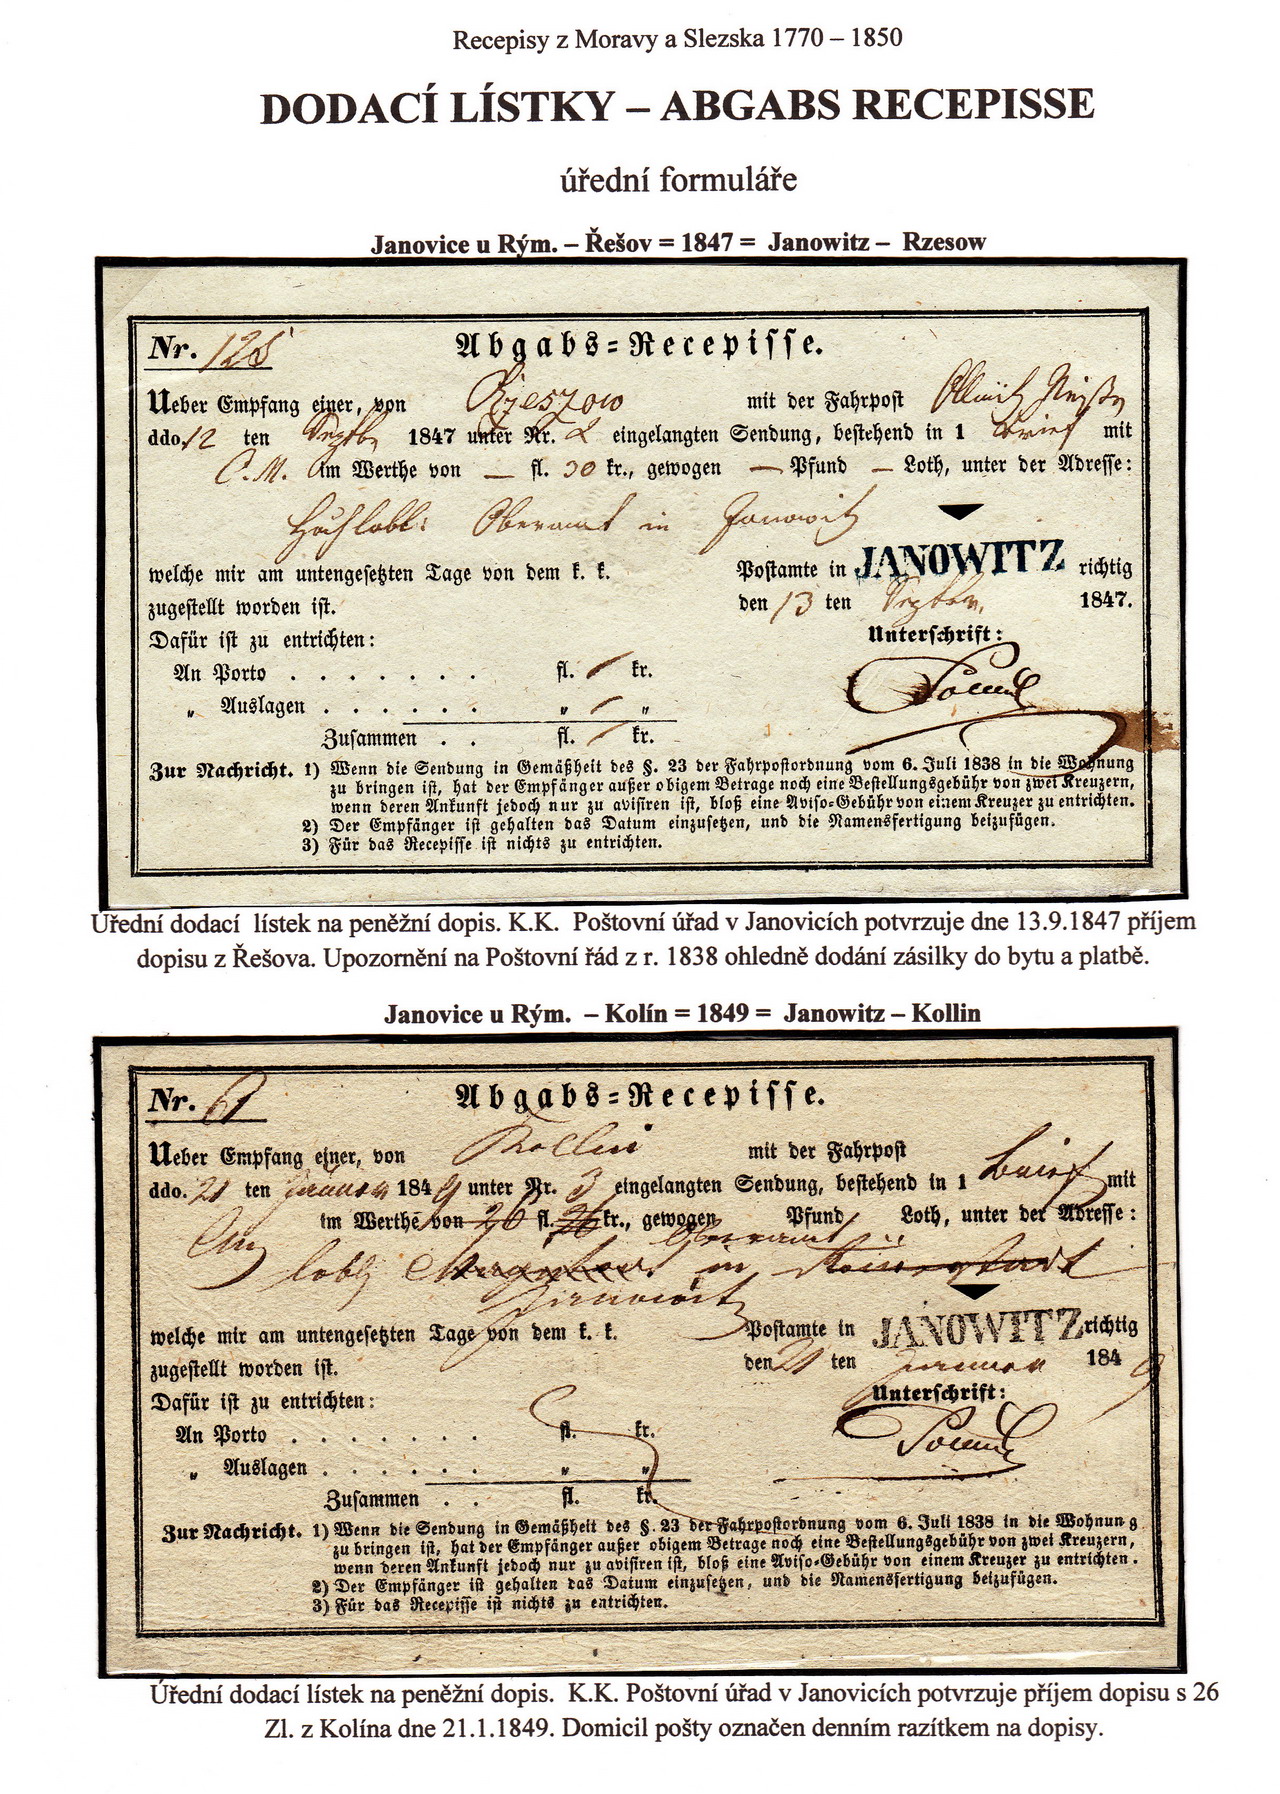 Recepisy z Moravy a Slezska 1770 – 1850
DODACÍ LÍSTKY – ABGABS RECEPISSE
úřední formuláře
Janovice u Rým. – Řešov = 1847 = Janowitz – Rzesow
Nr. 128 Abgabs=Recepisse.
Ueber Empfang einer, von Rzeszow mit der Fahrpost Ollmütz
ddo. 12 ten Septbr 1847 unter Nr. 2 eingelangten Sendung, bestehend in 1 Brief mit
C.M. Im Werthe von — fl. 30 kr., gewogen — Pfund — Loth, unter der Adresse:
Hochlobl: Oberamt in Janowitz
welche mir am untengesetzten Tage von dem k. k. Postamte in JANOWITZ richtig
zugestellt worden ist. den 13 ten Septbr. 1847.
Dafür ist zu entrichten: Unterschrift:
An Porto . . . . . . . fl. kr.
„ Auslagen . . . . . . „ „
Zusammen . . fl. kr.
Zur Nachricht. 1) Wenn die Sendung in Gemäßheit des §. 23 der Fahrpostordnung vom 6. Juli 1838 in die Wohnung
zu bringen ist, hat der Empfänger außer obigem Betrage noch eine Bestellungsgebühr von zwei Kreuzern,
wenn deren Ankunft jedoch nur zu avisiren ist, bloß eine Aviso-Gebühr von einem Kreuzer zu entrichten.
2) Der Empfänger ist gehalten das Datum einzusetzen, und die Namensfertigung beizufügen.
3) Für das Recepisse ist nichts zu entrichten.
Úřední dodací lístek na peněžní dopis. K.K. Poštovní úřad v Janovicích potvrzuje dne 13.9.1847 příjem
dopisu z Řešova. Upozornění na Poštovní řád z r. 1838 ohledně dodání zásilky do bytu a platbě.
Janovice u Rým. – Kolín = 1849 = Janowitz – Kollin
Nr. 61 Abgabs=Recepisse.
Ueber Empfang einer, von Kollin mit der Fahrpost
ddo. 21 ten Januar 1849 unter Nr. 3 eingelangten Sendung, bestehend in 1 Brief mit
im Werthe von 26 fl. 26 kr., gewogen Pfund Loth, unter der Adresse:
An Oberamt
lobl in
Janowitz
welche mir am untengesetzten Tage von dem k. k. Postamte in JANOWITZ richtig
zugestellt worden ist. den 21 ten Januar 1849
Dafür ist zu entrichten: Unterschrift:
An Porto . . . . . . . fl. kr.
„ Auslagen . . . . . . „ „
Zusammen . . fl. kr.
Zur Nachricht. 1) Wenn die Sendung in Gemäßheit des §. 23 der Fahrpostordnung vom 6. Juli 1838 in die Wohnung
zu bringen ist, hat der Empfänger außer obigem Betrage noch eine Bestellungsgebühr von zwei Kreuzern,
wenn deren Ankunft jedoch nur zu avisiren ist, bloß eine Aviso-Gebühr von einem Kreuzer zu entrichten.
2) Der Empfänger ist gehalten das Datum einzusetzen, und die Namensfertigung beizufügen.
3) Für das Recepisse ist nichts zu entrichten.
Úřední dodací lístek na peněžní dopis. K.K. Poštovní úřad v Janovicích potvrzuje příjem dopisu s 26
Zl. z Kolína dne 21.1.1849. Domicil pošty označen denním razítkem na dopisy.